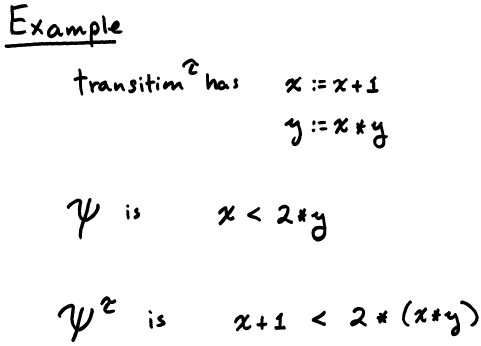 Example
transition τ has x := x+1
y := x * y
ψ is x < 2*y
ψ^τ is x+1 < 2 * (x*y)